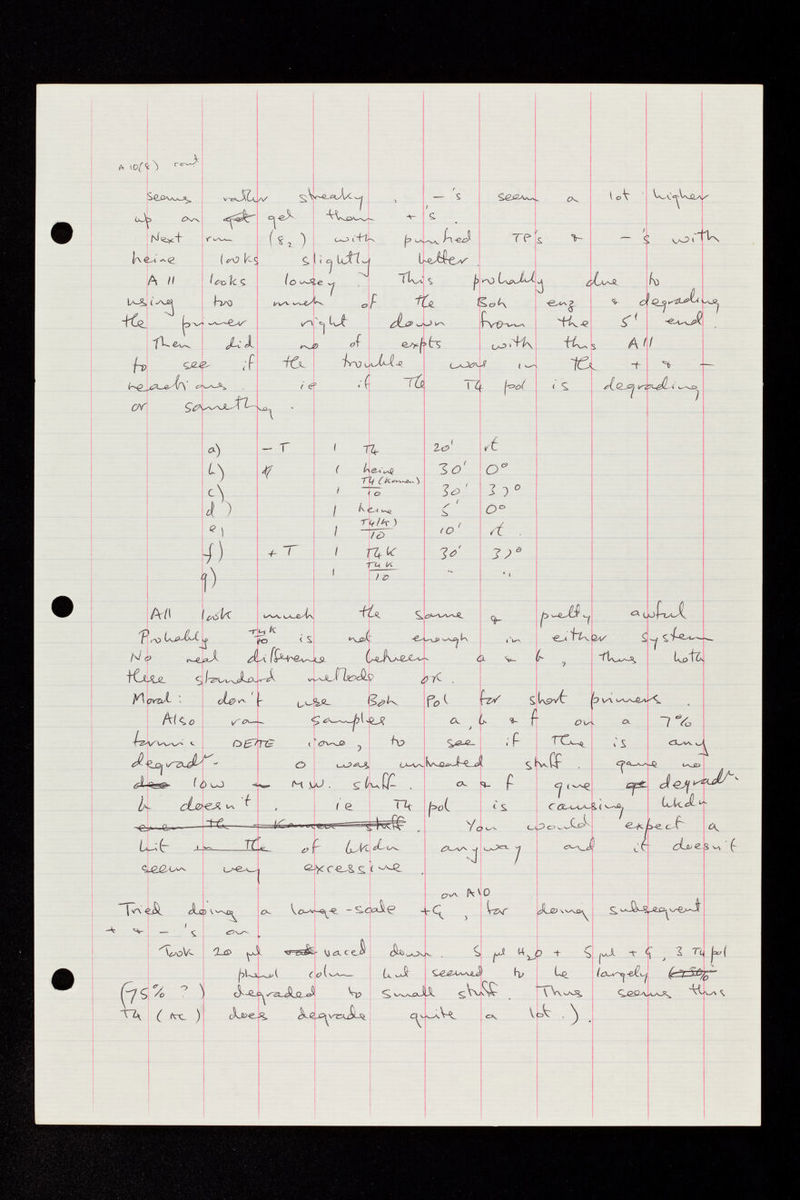 A 10(8) cont
Seems rather streaky. -'s seem a lot higher
up on get gel than +'s.
Next run (82) with purified TP's & -'s with
heine looks slightly better.
A11 looks lousey. This probably due to
using too much of the Boh enz & degrading
the primer right down from the 5' end.
Then did no of expts with this A11
to see if the trouble was in the + & -
reactions. ie if the T4 pol is degrading
or something.
a) - T 1 T4 20' rt
b) 1 heine 30' 0°
c) 1 T4 (Kamen)/10 30' 37°
d) 1 heine 5' 0°
e) 1 T4(K)/10 10' rt.
f) + T 1 T4 K 30' 37°
g) 1 T4 K/10 " "
All look much the same & pretty awful
Probably T4K/10 is not enough in either system
No real difference between a & b, thus both
these standard methods OK.
Moral: don't use Boh Pol for short primers.
Also ran samples a, b & f on a 7%
formic DEAE ione, to see if there is any
degradn. O was untreated stuff. gave no
low M.W. stuff. a & f give degradn.
b doesn't. ie T4 pol is causing bkdn
even the Kamen stuff. You would expect a
bit in the of bkdn anyway and it doesn't
seem very excessive.
on A10
Tried doing a large-scale +G, for doing subsequent
+ & -'s on.
Took 20 µl vaced down. 5 µl H2O + 5 µl + G, 3 T4 pol
phenol colum but seemed to be largely
(75% ?) degraded to small stuff. Thus seems this
T4 (AC) does degrade quite a lot.).